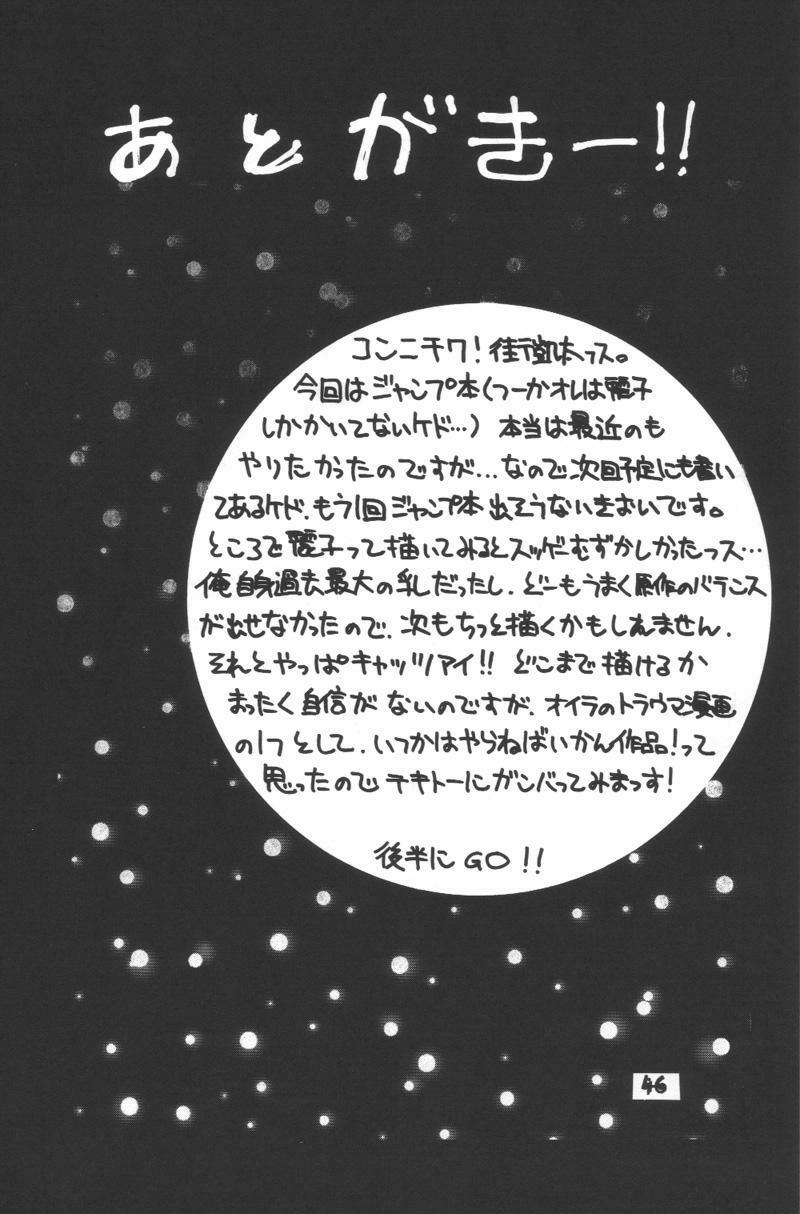 あとがきー!!
コンニチワ!街道はっス。
今回はジャンプ本(つーかオレは麗子
しかかいてないケド…)本当は最近のも
やりたかったのですが…なので次回予定にも書い
てあるケド、もう1回ジャンプ本出そうないきおいです。
ところで麗子って描いてみるとスッゲーむずかしかったっス…
俺自身過去最大の乳だったし、どーもうまく原作のバランス
が出せなかったので、次もちっと描くかもしえません、
それとやっぱキャッツアイ!!どこまで描けるか
まったく自信がないのですが、オイラのトラウマ漫画
の1つとして、いつかはやらねばいかん作品!って
思ったのでテキトーにガンバってみまっす!
後半にGO!!
46